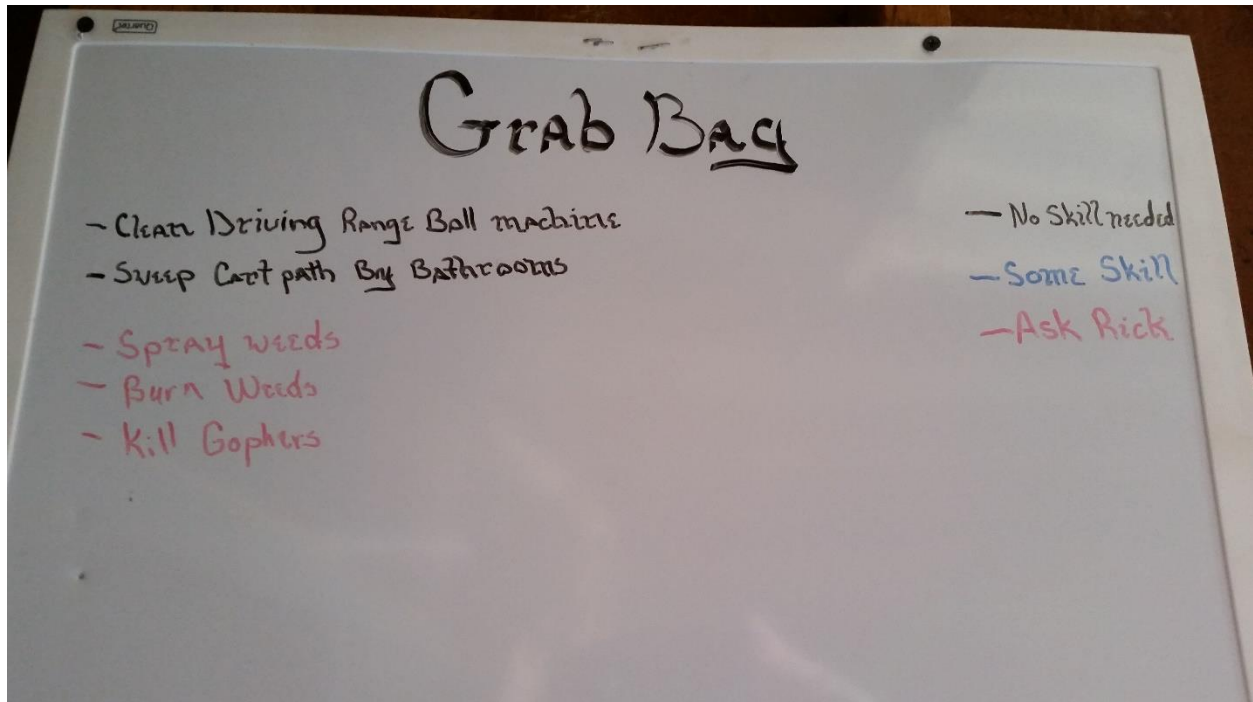 Quartet
Grab Bag
- Clean Driving Range Ball machine
- Sweep Cart path By Bathrooms
- Spray weeds
- Burn Weeds
- Kill Gophers
- No Skill needed
- Some Skill
- Ask Rick